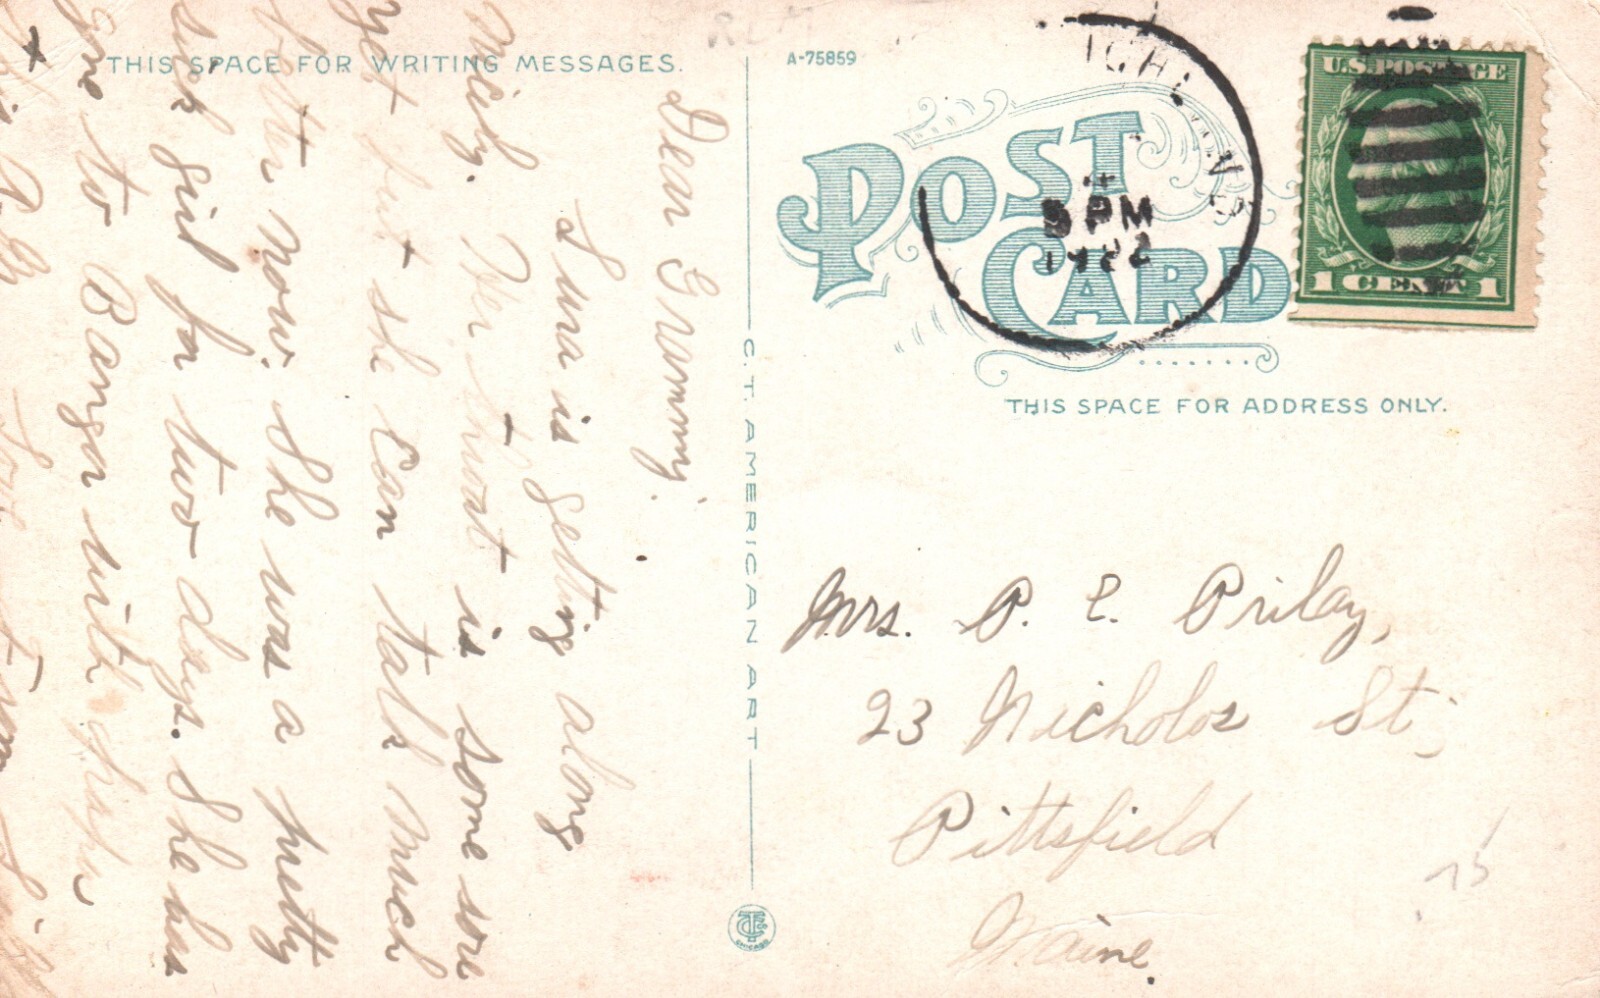 THIS SPACE FOR WRITING MESSAGES.
Dear Grammy:
Sura is getting along
nicely. Her throat is some sore
yet but she can talk much
better now. She was a pretty
sick girl for two days. She has
gone to Bangor with
A-75859
POST
CARD
5 PM
U.S. POSTAGE
1 CENT 1
C.T. AMERICAN ART
CHICAGO
THIS SPACE FOR ADDRESS ONLY.
Mrs. P. E. Prilay,
23 Nicholos St,
Pittsfield
Maine.